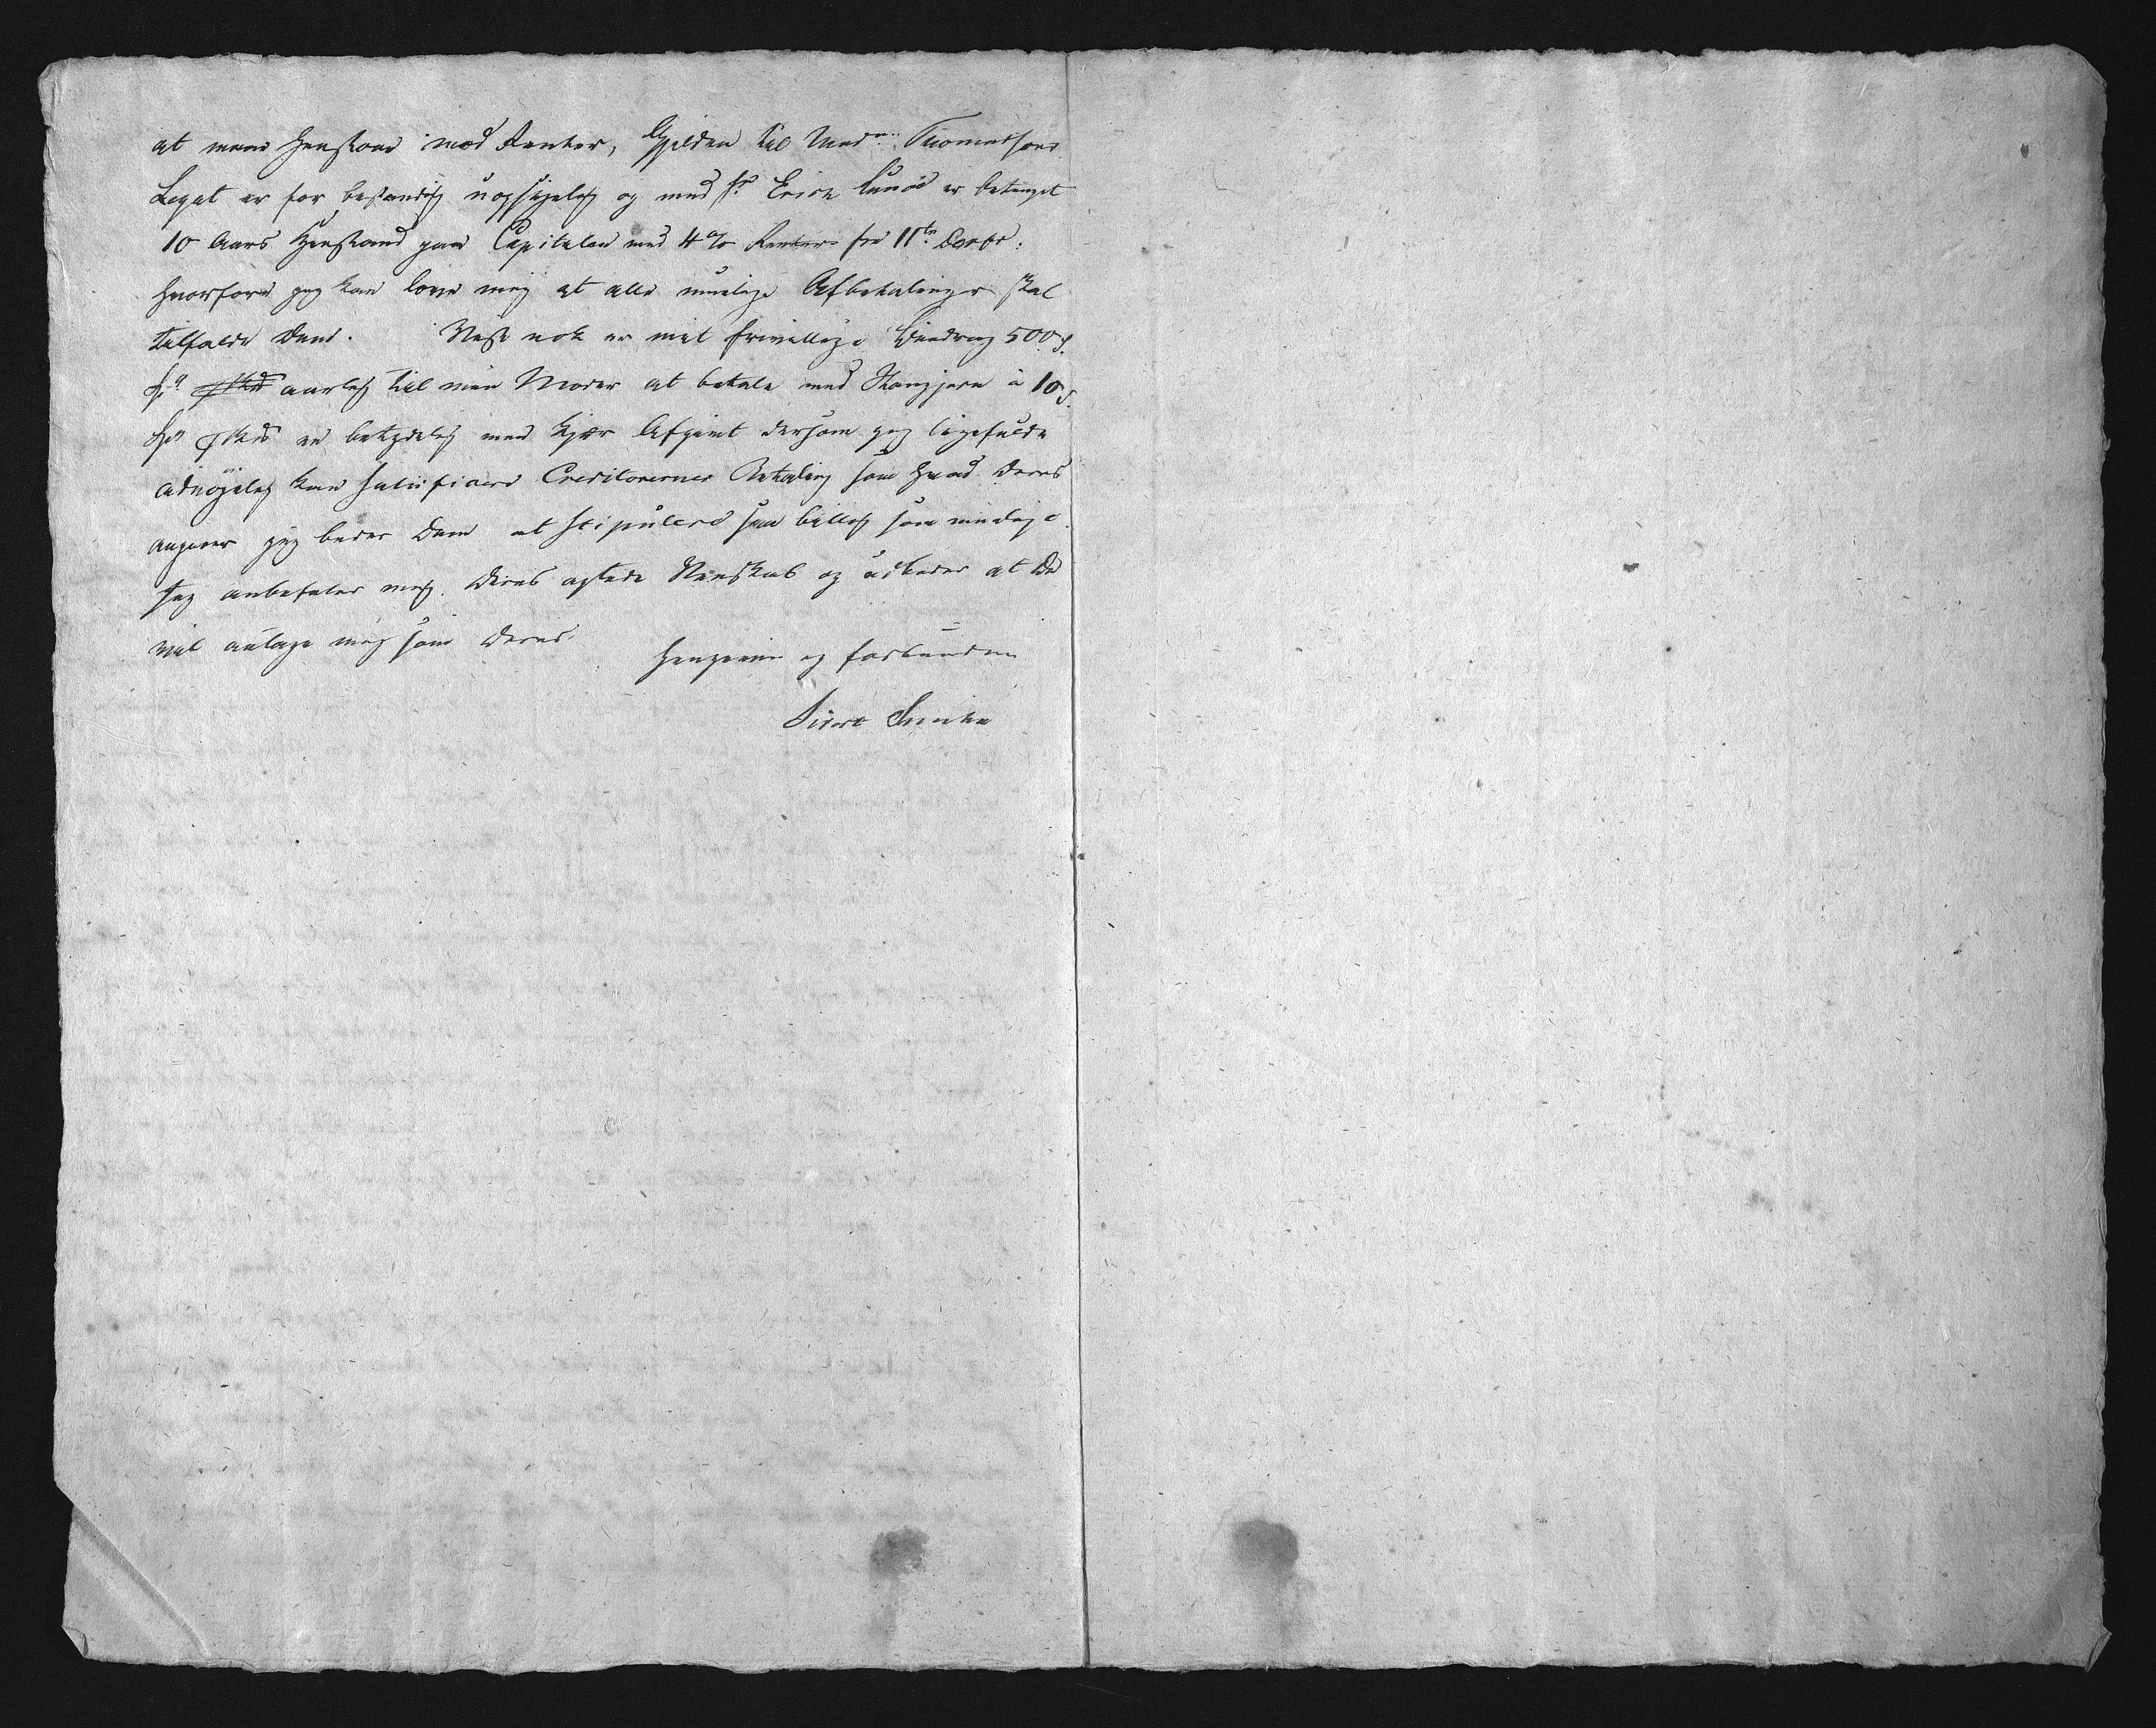 at mene Henstand mod Renter, Gjelden til Mad.m Thomassons
Legat er for bestandig uopsigelig og med Hr Erich er betinget
10 Aars Henstand paa Capitalen med 4 % Renter fra 11te Decbr:
hvorfore jeg kan love mig at alle muelige Afbetalinger skal
tilfalde Dem. Nest nok er mit frivillige Bidrag 500 S.
aarlig til min Moder at betale med Stangjern à 10 S.
en betydelig Afgivt dersom jeg ligefuldt
uds kan satisficere Creditorernes Betaling som hvad Deres
angaaer jeg beder Dem at stipulere saa billig som muelig.
Jeg anbefaler mig Deres agtede Venskab og udbeder at De
vil antage mig som Deres
hengivne og forbundne
Sivert